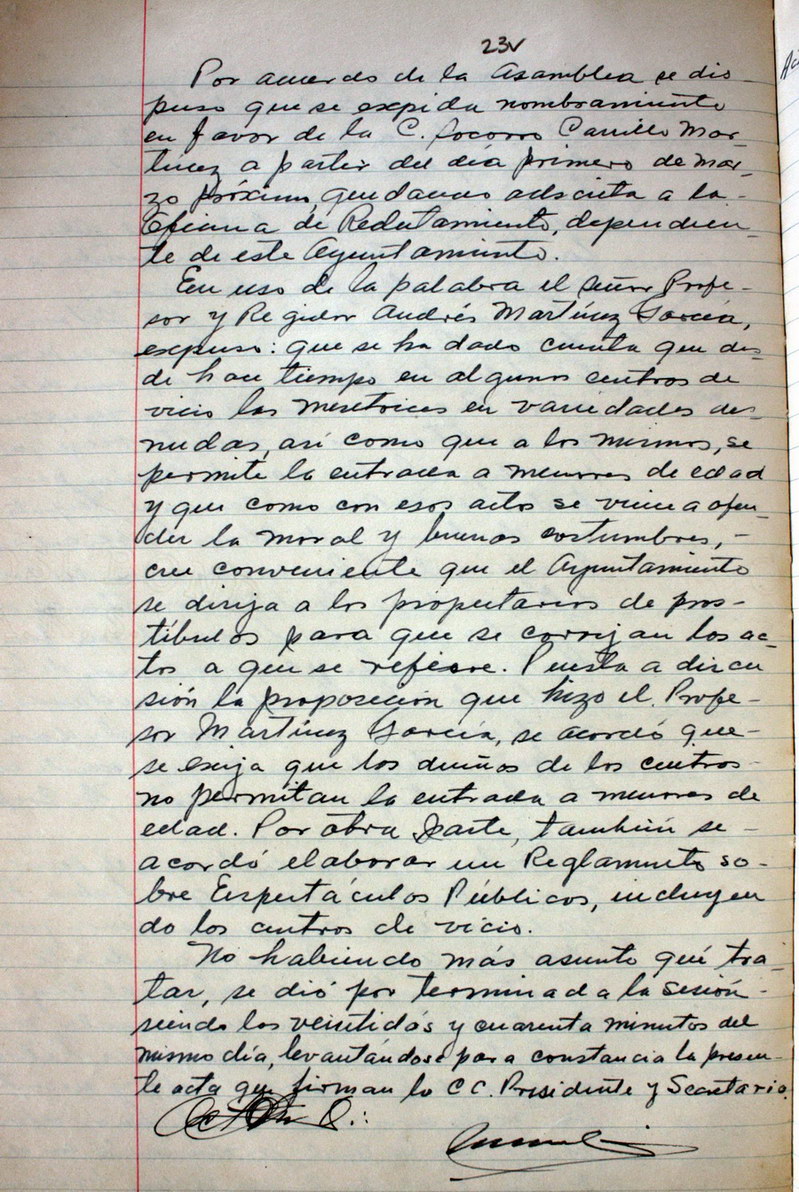 23v
Por acuerdo de la Asamblea se dis-
puso que se expida nombramiento
en favor de la C. Socorro Carrillo Mar-
tínez a partir del día primero de mar-
zo próximo, quedando adscrita a la -
Oficina de Reclutamiento, dependien-
te de este Ayuntamiento.
En uso de la palabra el señor Profe-
sor y Regidor Andrés Martínez García,
expuso: que se ha dado cuenta que des-
de hace tiempo en algunos centros de
vicio las meretrices en variedades des-
nudas, así como que a los mismos, se
permite la entrada a menores de edad
y que como con esos actos se viene a ofen-
der la moral y buenas costumbres, -
cree conveniente que el Ayuntamiento
se dirija a los propietarios de pros-
tíbulos para que se corrijan los ac-
tos a que se refiere. Puesta a discu
sión la proposición que hizo el Profe-
sor Martínez García, se acordó que -
se exija que los dueños de los centros
no permitan la entrada a menores de
edad. Por otra parte, también se -
acordó elaborar un Reglamento so-
bre Espectáculos Públicos, incluyen
do los centros de vicio.
No habiendo más asunto qué tra-
tar, se dió por terminada la sesión -
siendo las veintidós y cuarenta minutos del
mismo día, levantándose para constancia la presen-
te acta que firman lo CC. Presidente y Secretario.